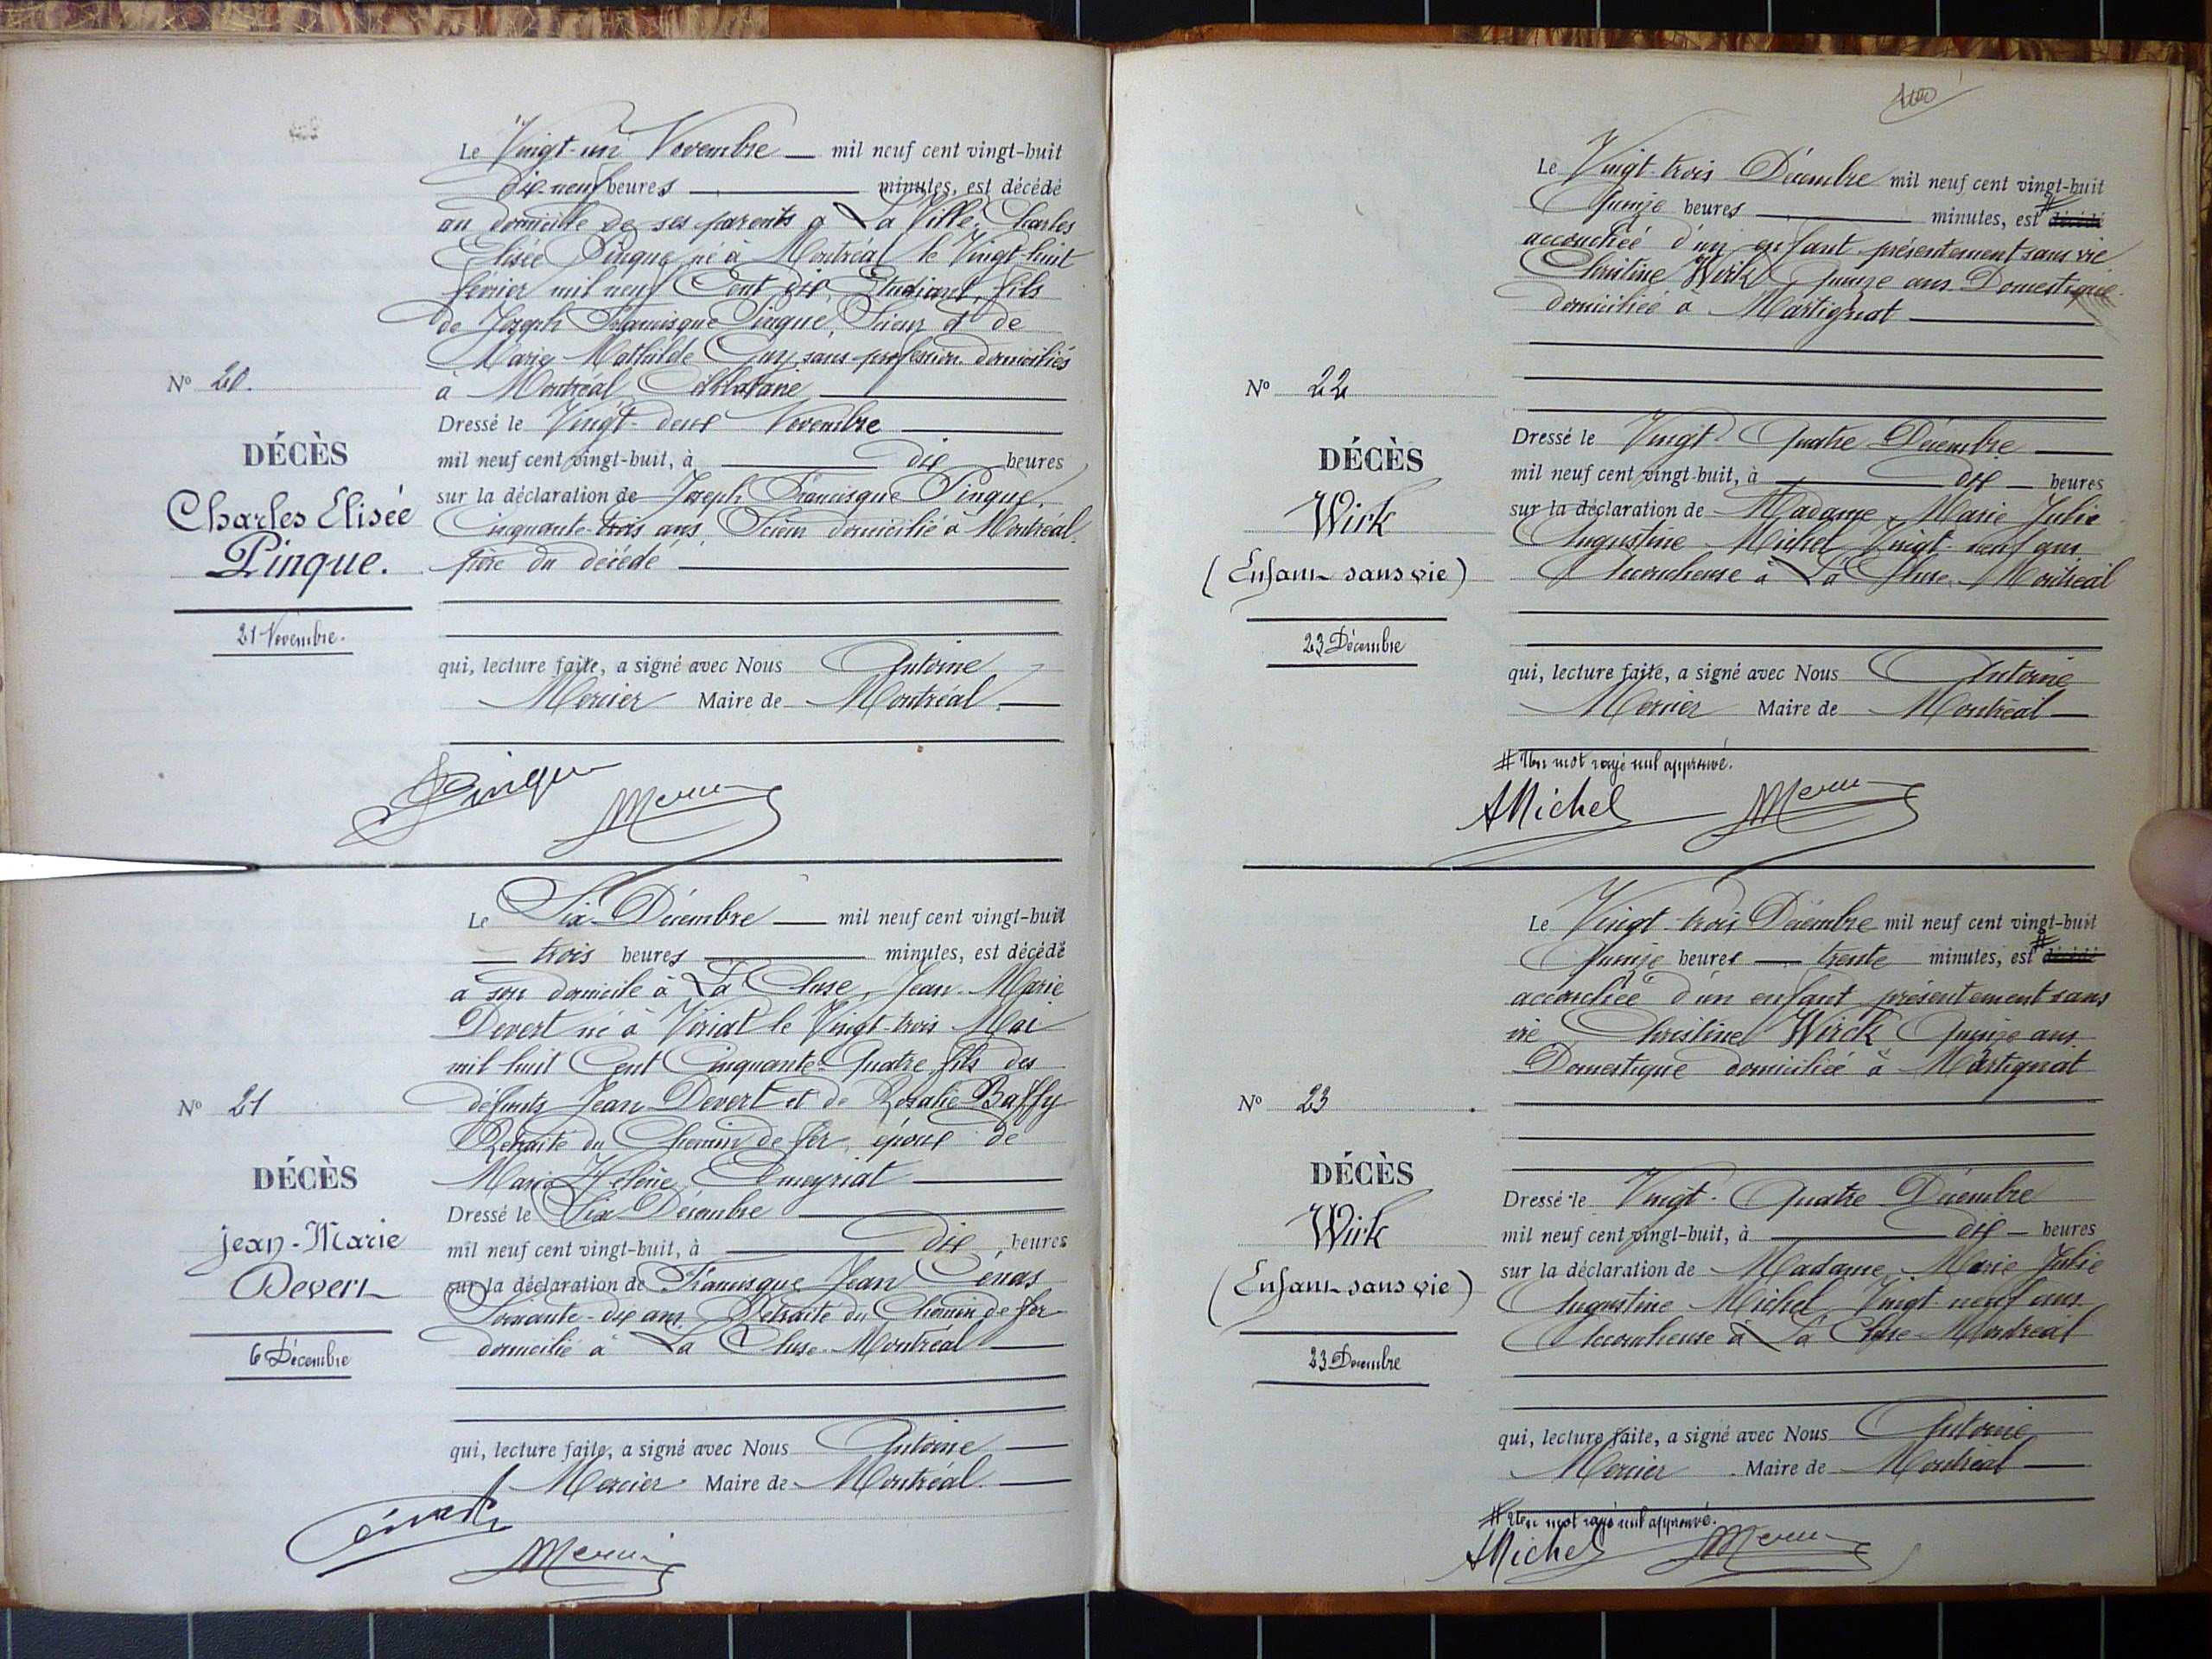 Le Vingt-un Novembre mil neuf cent vingt-huit
dix-neuf heures minutes, est décédé
au domicile de ses parents à La Ville, Charles
Elisée Pinque né à Montréal le Vingt-huit
février mil neuf Cent dix, Etudiant, fils
de Joseph Francisque Pinque, Scieur et de
Marie Mathilde Guy, sans profession domiciliés
à Montréal Célibataire
Nº 20.
Dressé le Vingt-deux Novembre
mil neuf cent vingt-huit, à dix heures
DÉCÈS
Charles Elisée
Pinque.
21 Novembre.
sur la déclaration de Joseph Francisque Pinque,
Cinquante-trois ans, Scieur domicilié à Montréal,
père du décédé
qui, lecture faite, a signé avec Nous Antoine
Mercier Maire de Montréal.
Pinque Mercier
Le Six Décembre mil neuf cent vingt-huit
trois heures minutes, est décédé
à son domicile à La Cluse, Jean-Marie
Devert né à Viriat le Vingt-trois Mai
mil huit Cent Cinquante-Quatre, fils des
défunts Jean Devert et de Rosalie Baffy
Retraité du Chemin de fer, époux de
Marie Hélène Gueyriat
Nº 21
DÉCÈS
Jean-Marie
Devert
6 Décembre
Dressé le Six Décembre
mil neuf cent vingt-huit, à Dix heures
sur la déclaration de Francisque Jean Cénas
Soixante-dix ans, Retraité du Chemin de fer
domicilié à La Cluse-Montréal
qui, lecture faite, a signé avec Nous Antoine
Mercier Maire de Montréal.
Cénas
Mercier
100
Le Vingt-trois Décembre mil neuf cent vingt-huit
Quinze heures minutes, est # décédé
accouchée d'un enfant présentement sans vie
Christine Wirk Quinze ans Domestique
domiciliée à Martignat
Nº 22
DÉCÈS
Wirk
(Enfant sans vie)
23 Décembre
Dressé le Vingt-Quatre Décembre
mil neuf cent vingt-huit, à dix heures
sur la déclaration de Madame Marie Julie
Augustine Michel, Vingt-neuf ans
Accoucheuse à La Cluse-Montréal
qui, lecture faite, a signé avec Nous Antoine
Mercier Maire de Montréal
# Un mot rayé nul approuvé.
AMichel Mercier
Le Vingt-trois Décembre mil neuf cent vingt-huit
Quinze heures trente minutes, est # décédé
accouchée d'un enfant présentement sans
vie Christine Wirck Quinze ans
Domestique domiciliée à Martignat
Nº 23
DÉCÈS
Wirk
(Enfant sans vie)
23 Décembre
Dressé le Vingt-Quatre Décembre
mil neuf cent vingt-huit, à dix heures
sur la déclaration de Madame Marie Julie
Augustine Michel, Vingt-neuf ans
Accoucheuse à La Cluse-Montréal
qui, lecture faite, a signé avec Nous Antoine
Mercier Maire de Montréal
# Un mot rayé nul approuvé.
AMichel Mercier